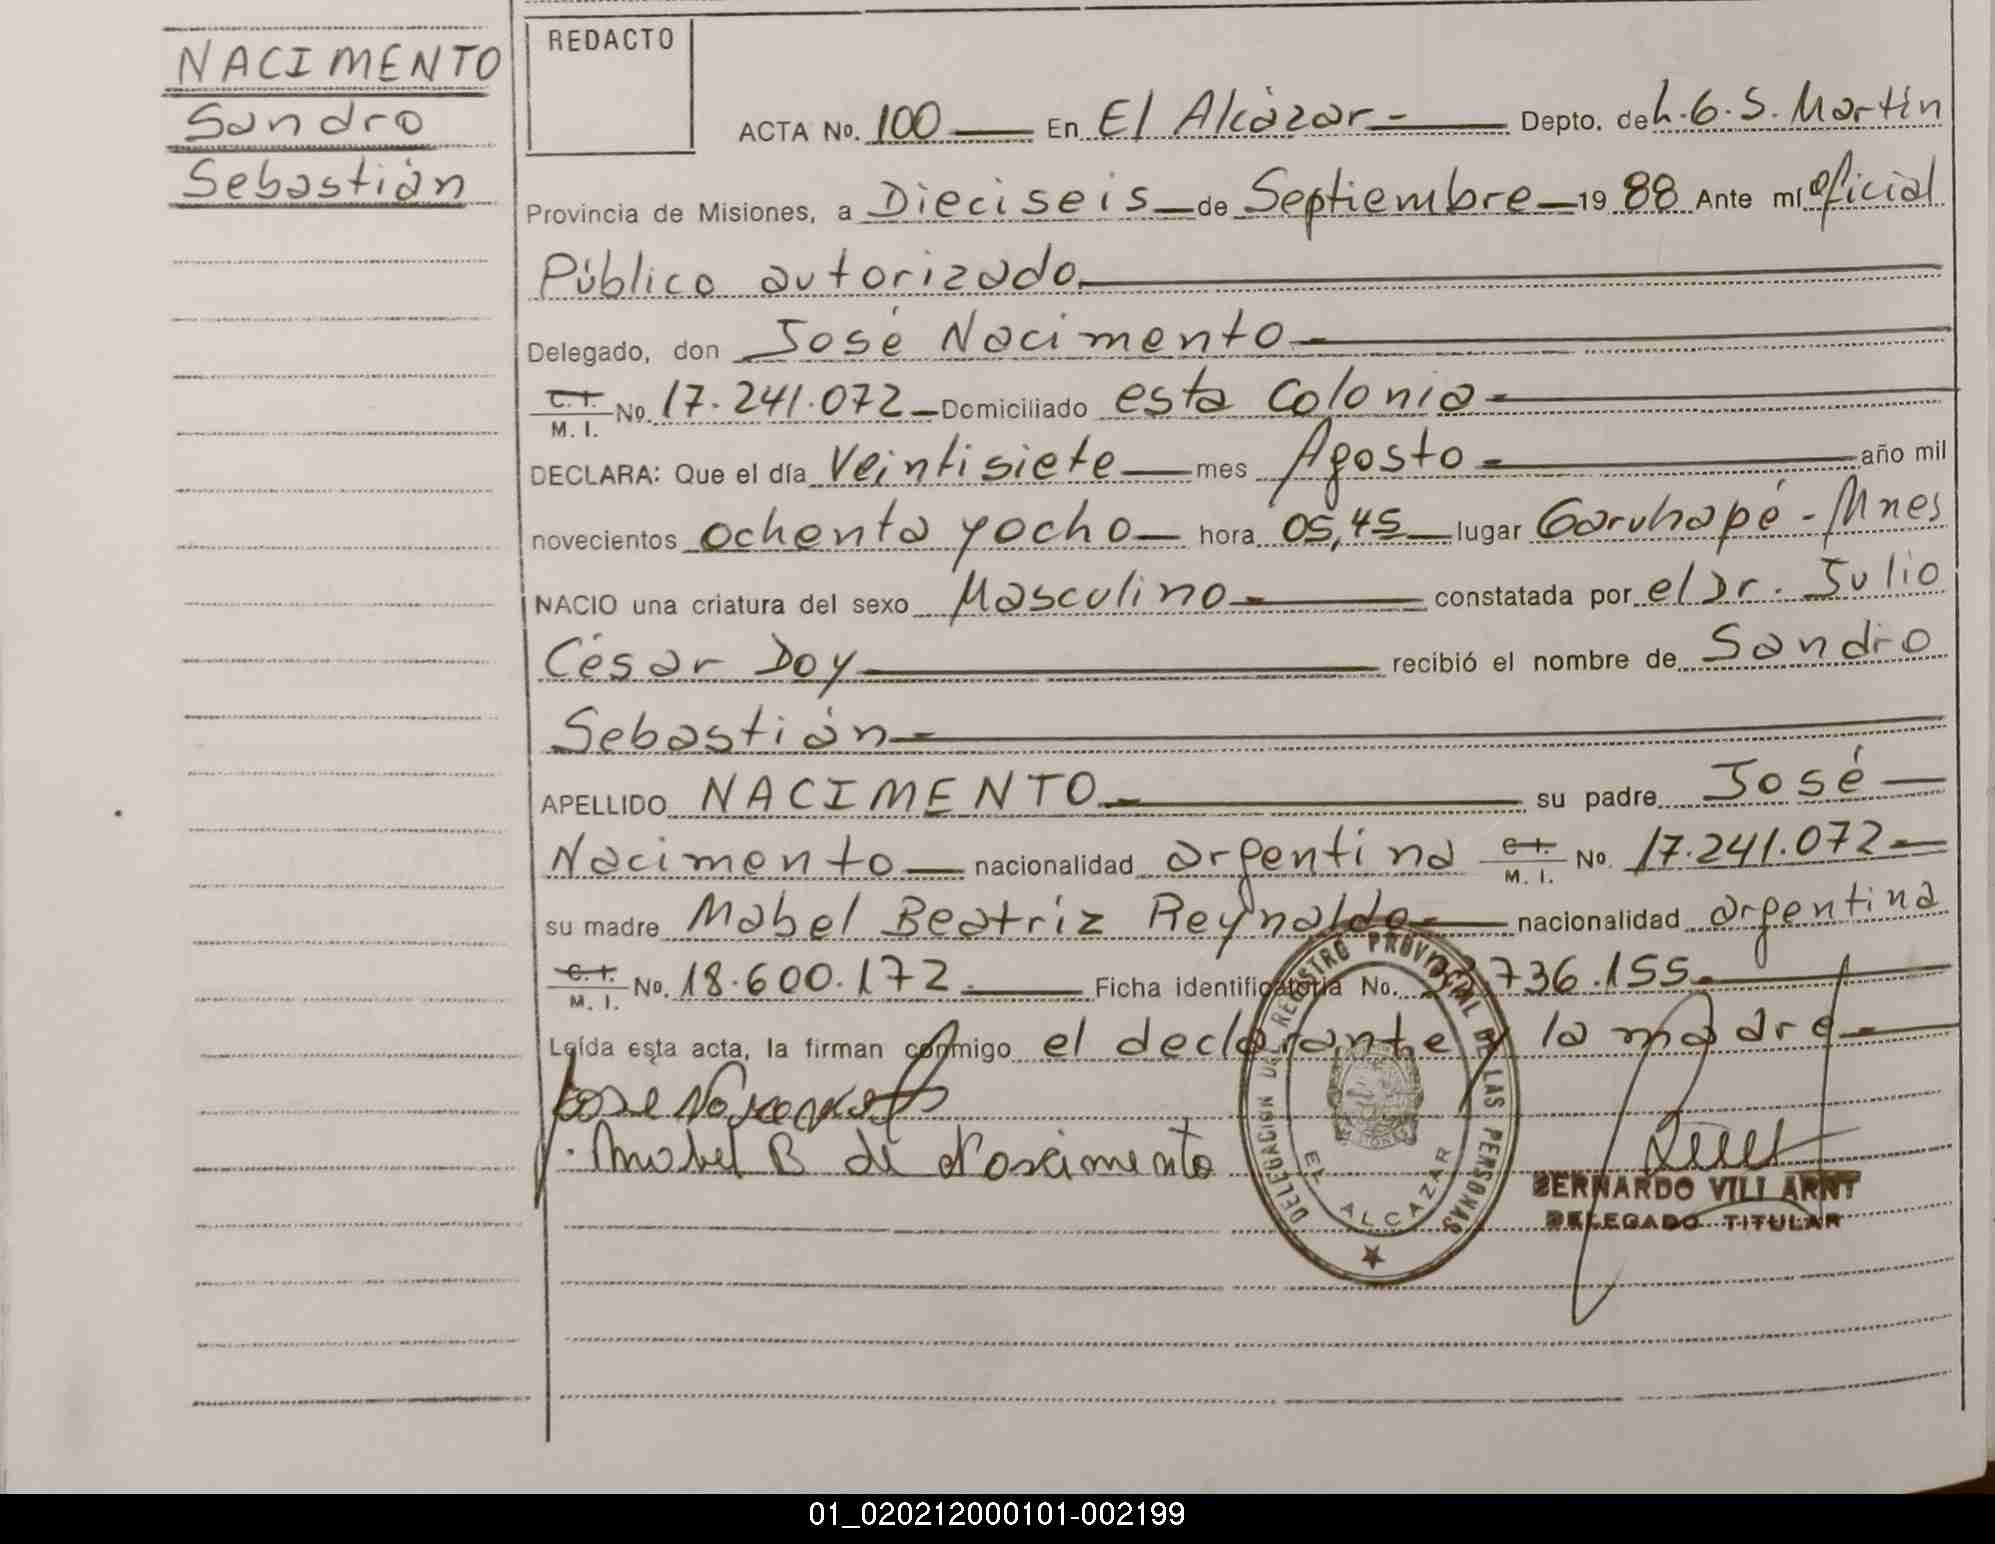 NACIMENTO
Sandro
Sebastián
REDACTO
ACTA No. 100 En El Alcázar - Depto. de L.G.S. Martín
Provincia de Misiones, a Dieciseis de Septiembre 19 88 Ante mí Oficial
Público autorizado
Delegado, don José Nacimento
C. I. M. I. No. 17.241.072 Domiciliado esta Colonia
DECLARA: Que el día Veintisiete mes Agosto año mil
novecientos ochenta y ocho hora 05,45 lugar Garuhapé - Mnes
NACIO una criatura del sexo Masculino constatada por el Dr. Julio
César Doy recibió el nombre de Sandro
Sebastián
APELLIDO NACIMENTO su padre José
Nacimento nacionalidad argentina C. I. M. I. No. 17.241.072
su madre Mabel Beatríz Reynaldo nacionalidad argentina
C. I. M. I. No. 18.600.172 Ficha identificatoria No. 736.155
Leída esta acta, la firman conmigo el declarante y la madre
Jose
Mabel B de Nascimento
DELEGACION DEL REGISTRO PROVINCIAL DE LAS PERSONAS
EL ALCAZAR
BERNARDO VILLARNT
DELEGADO TITULAR
01_020212000101-002199